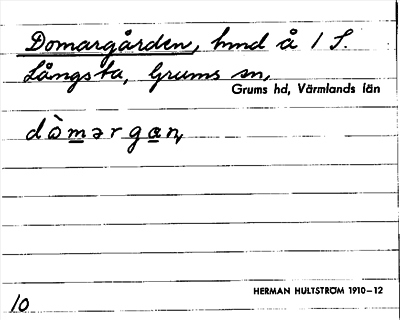 Domargården, hmd å 1 S.
Långsta, Grums sn,
Grums hd, Värmlands län
dòmərgan,
HERMAN HULTSTRÖM 1910–12
10